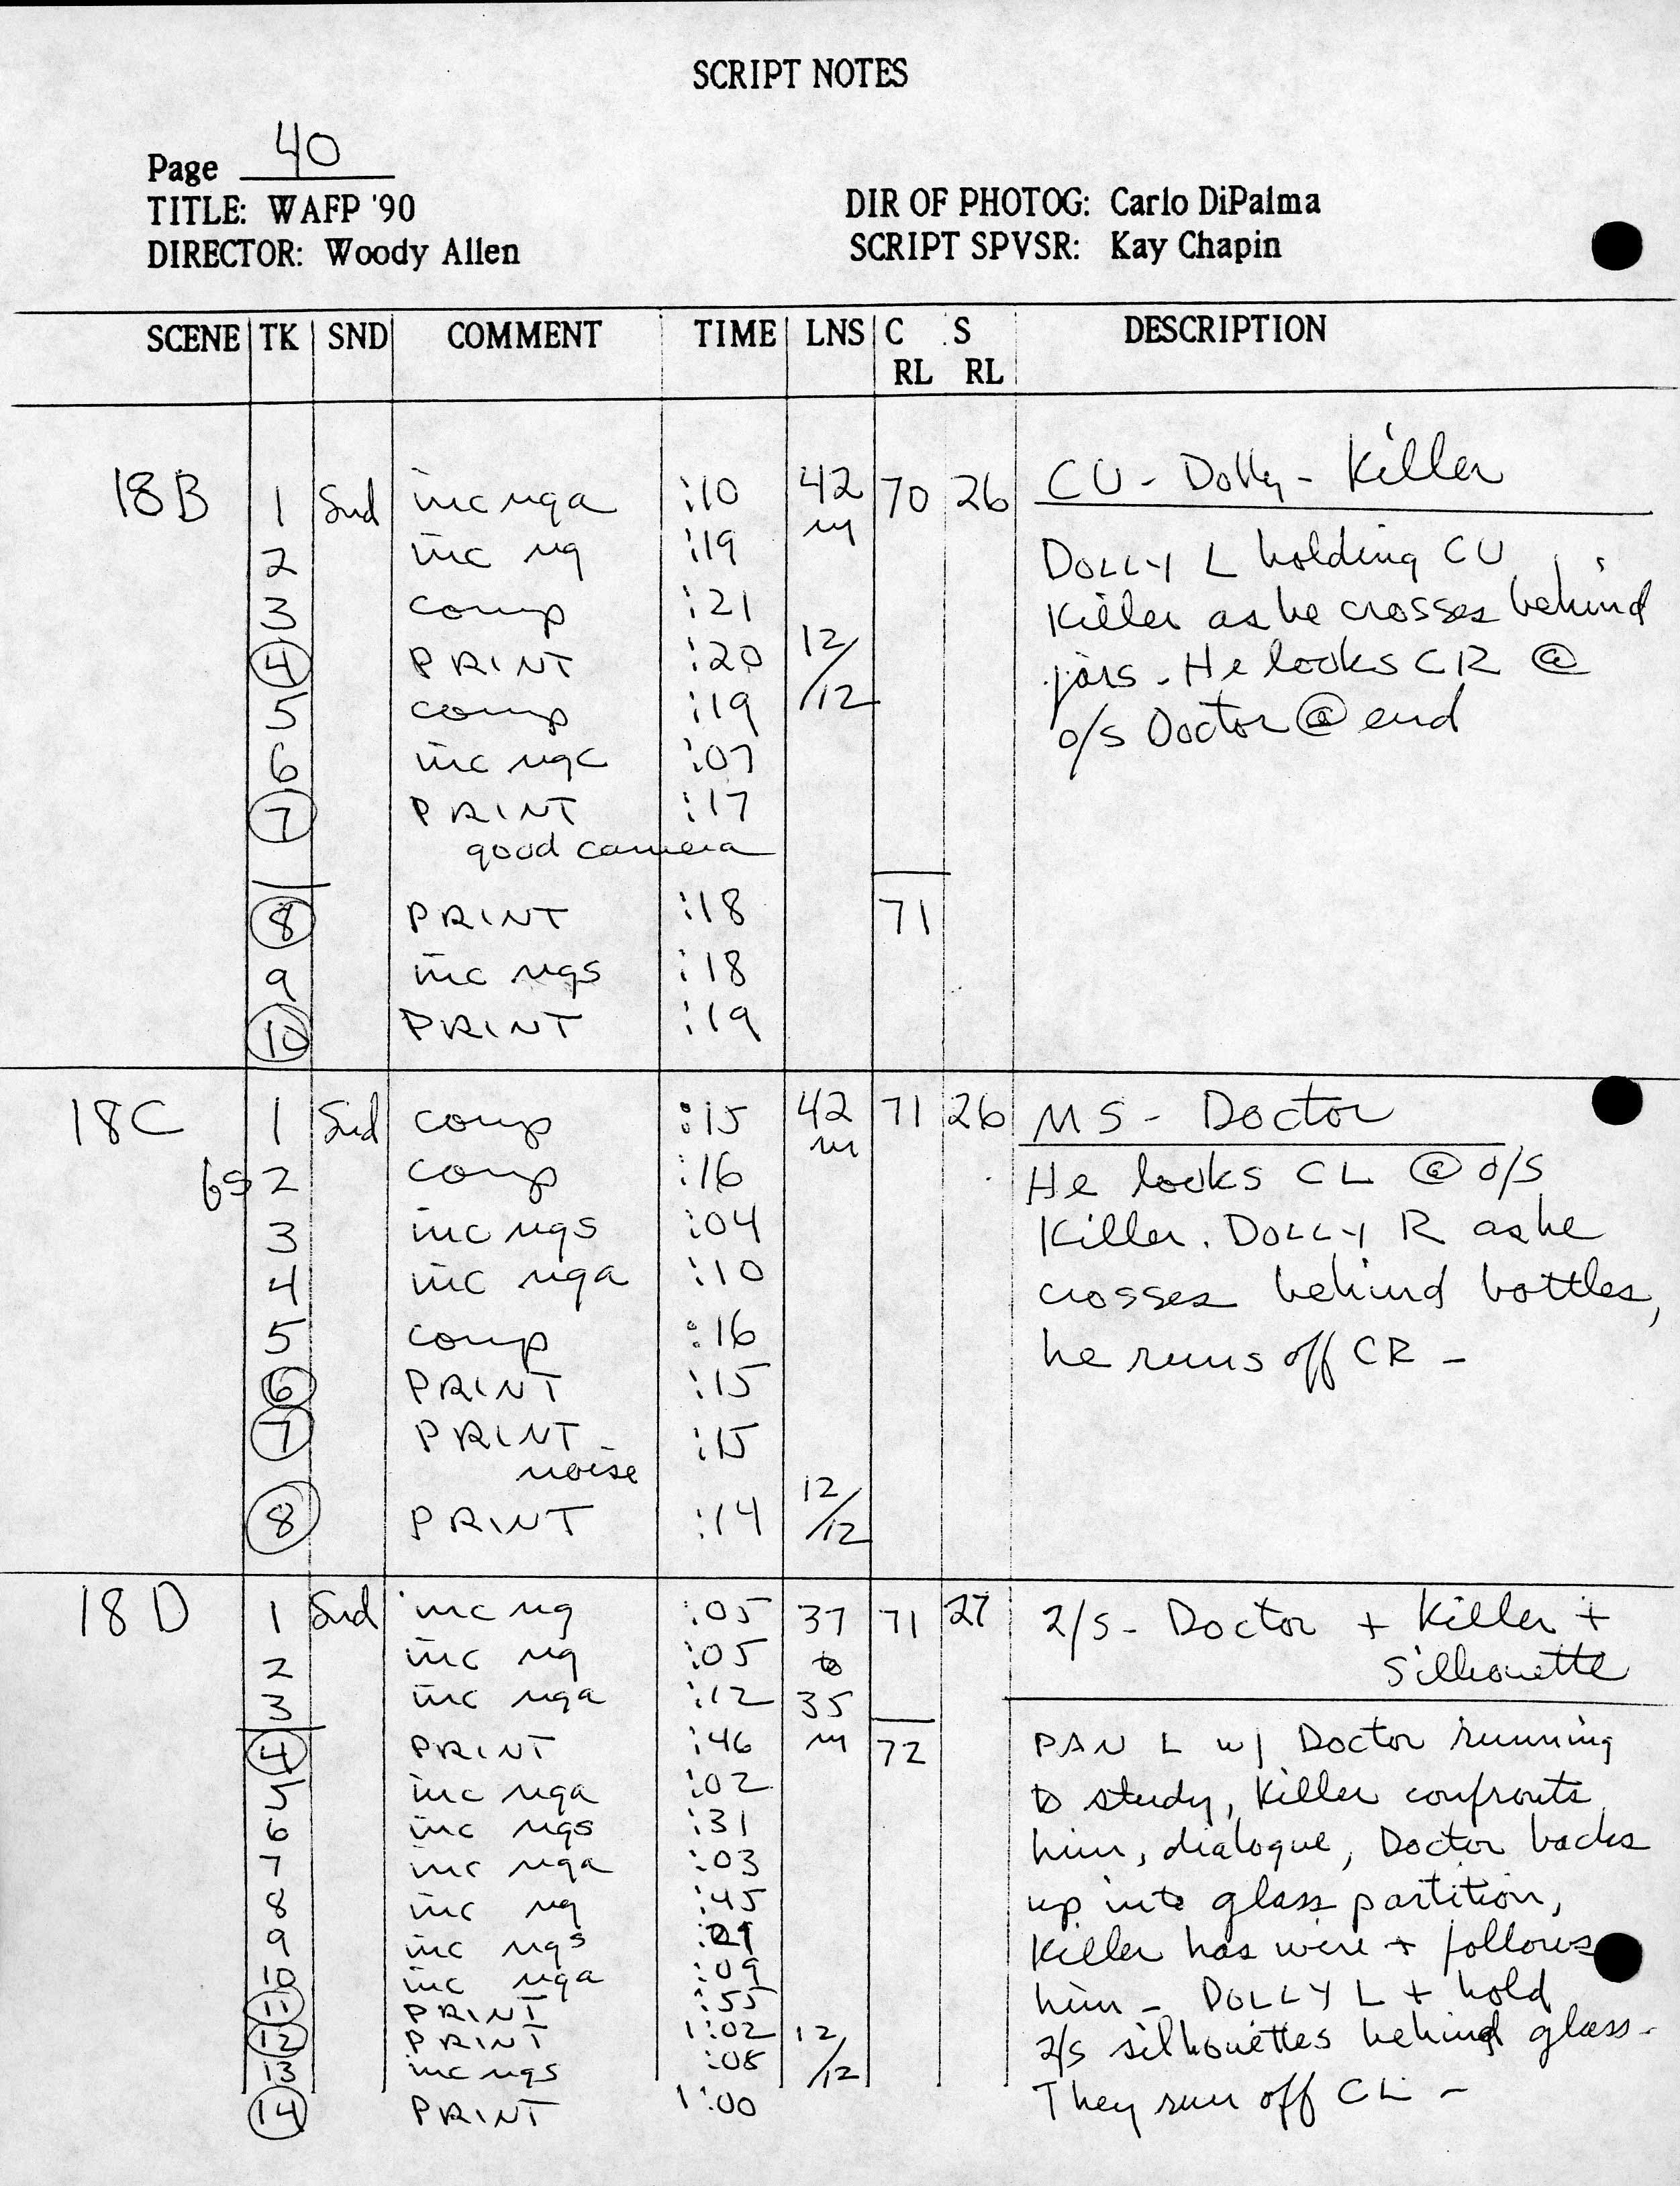 SCRIPT NOTES
Page 40
TITLE: WAFP '90
DIRECTOR: Woody Allen
DIR OF PHOTOG: Carlo DiPalma
SCRIPT SPVSR: Kay Chapin
SCENE TK SND COMMENT TIME LNS C S DESCRIPTION
RL RL
18B 1 Snd inc nga :10 42 70 26 CU - Dolly - Killer
m
2 inc ng :19 DOLLY L holding CU
3 comp :21 Killer as he crosses behind
4 PRINT :20 12/12 jars - He looks CR @
5 comp :19 o/s Doctor @ end
6 inc ngc :07
7 PRINT :17
good camera
8 PRINT :18 71
9 inc ngs :18
10 PRINT :19
18C 1 Snd comp :15 42 71 26 MS - Doctor
m
2 comp :16 He looks CL @ o/s
3 inc ngs :04 Killer. DOLLY R as he
4 inc nga :10 crosses behind bottles,
5 comp :16 he runs off CR -
6 PRINT :15
7 PRINT :15
noise
8 PRINT :14 12/12
18D 1 Snd inc ng :05 37 71 27 2/S - Doctor + Killer +
2 inc ng :05 to Silhouette
3 inc nga :12 35
4 PRINT :46 m 72 PAN L w/ Doctor running
5 inc nga :02 to study, Killer confronts
6 inc ngs :31 him, dialogue, Doctor backs
7 inc nga :03
8 inc ng :45 up into glass partition,
9 inc ngs Killer has wire + follows
10 inc nga :09
11 PRINT :55 him - DOLLY L + hold
12 PRINT 1:02 12/12 2/S silhouettes behind glass -
13 inc ngs :08
14 PRINT 1:00 They run off CL -